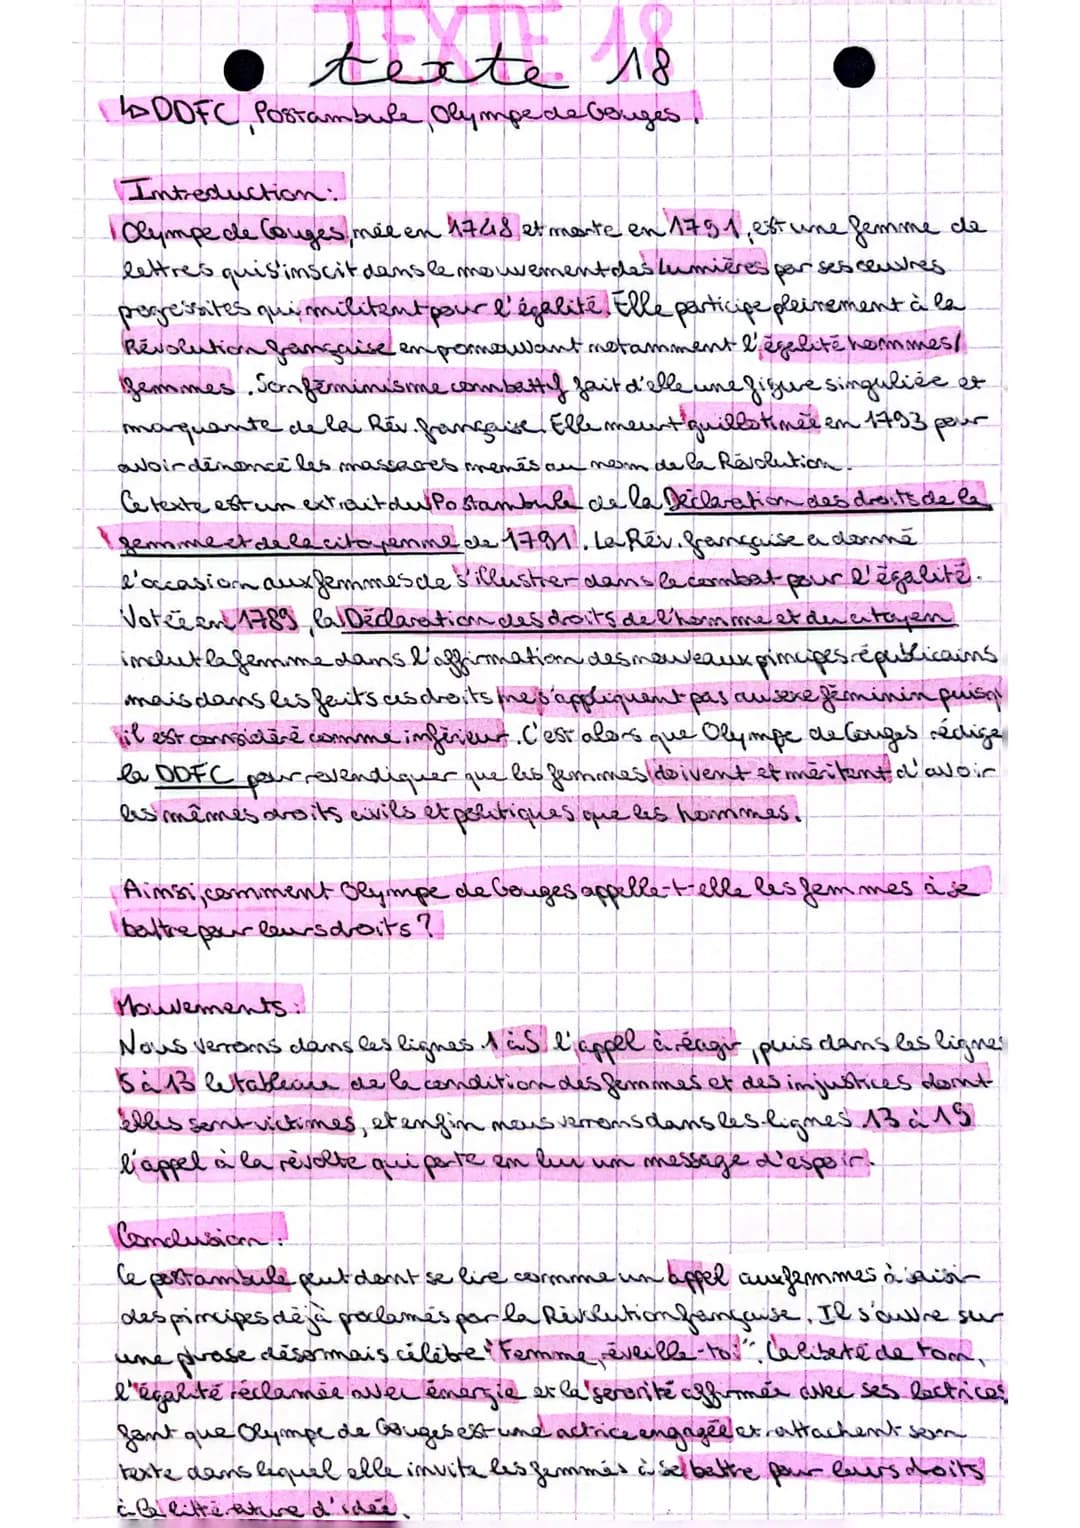 TEXTE 18
texte 18
↳ DDFC, Postambule, Olympe de Gouges.
Introduction :
Olympe de Gouges, née en 1748 et morte en 1791, est une femme de
lettres qui s'inscit dans le mouvement des Lumières par ses œuvres
pogressites qui militent pour l'égalité. Elle participe pleinement à la
Révolution française en promouvant notamment l'égalité hommes/
femmes. Son féminisme combattif fait d'elle une figure singulière et
marquante de la Rév. française. Elle meurt guillotinée en 1793 pour
avoir dénoncé les massacres menés au nom de la Révolution.
Ce texte est un extrait du Postambule de la Déclaration des droits de la
femme et de la citoyenne de 1791. La Rév. française a donné
l'occasion aux femmes de s'illustrer dans le combat pour l'égalité.
Votée en 1789, la Déclaration des droits de l'homme et du citoyen
inclut la femme dans l'affirmation des nouveaux principes républicains
mais dans les faits ces droits ne s'appliquent pas au sexe féminin puisqu'
il est considéré comme inférieur. C'est alors que Olympe de Gouges rédige
la DDFC pour revendiquer que les femmes doivent et méritent d'avoir
les mêmes droits civils et politiques que les hommes.
Ainsi, comment Olympe de Gouges appelle-t-elle les femmes à se
battre pour leurs droits ?
Mouvements :
Nous verrons dans les lignes 1 à 5 l'appel à réagir, puis dans les lignes
5 à 13 le tableau de la condition des femmes et des injustices dont
elles sont victimes, et enfin nous verrons dans les lignes 13 à 19
l'appel à la révolte qui porte en lui un message d'espoir.
Conclusion :
Ce postambule peut dont se lire comme un appel aux femmes à saisir
des principes déjà proclamés par la Révolution française. Il s'ouvre sur
une phrase désormais célèbre "Femme, éveille-toi". La liberté de ton,
l'égalité réclamée avec énergie et la sororité affirmée avec ses lectrices
font que Olympe de Gouges est une actrice engagée et rattachent son
texte dans lequel elle invite les femmes à se battre pour leurs droits
à la littérature d'idée.